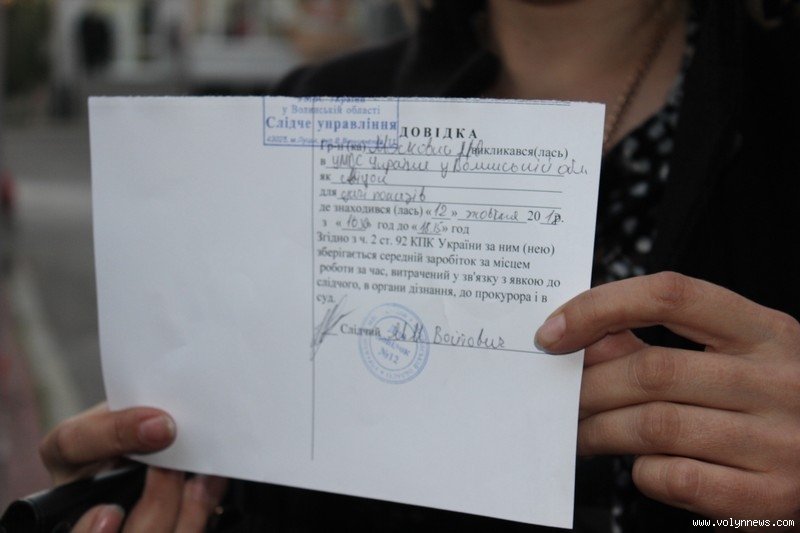 УМВС України
у Волинській області
Слідче управління
ДОВІДКА
Гр-н (ка) викликався(лась)
в УМВС України у Волинській обл
як свідок
для дачі показів
де знаходився (лась) «12 » жовтня 20 р.
з « » год до « » год
Згідно з ч. 2 ст. 92 КПК України за ним (нею)
зберігається середній заробіток за місцем
роботи за час, витрачений у зв'язку з явкою до
слідчого, в органи дізнання, до прокурора і в
суд.
Слідчий Войтович
№12
www.volynnews.com